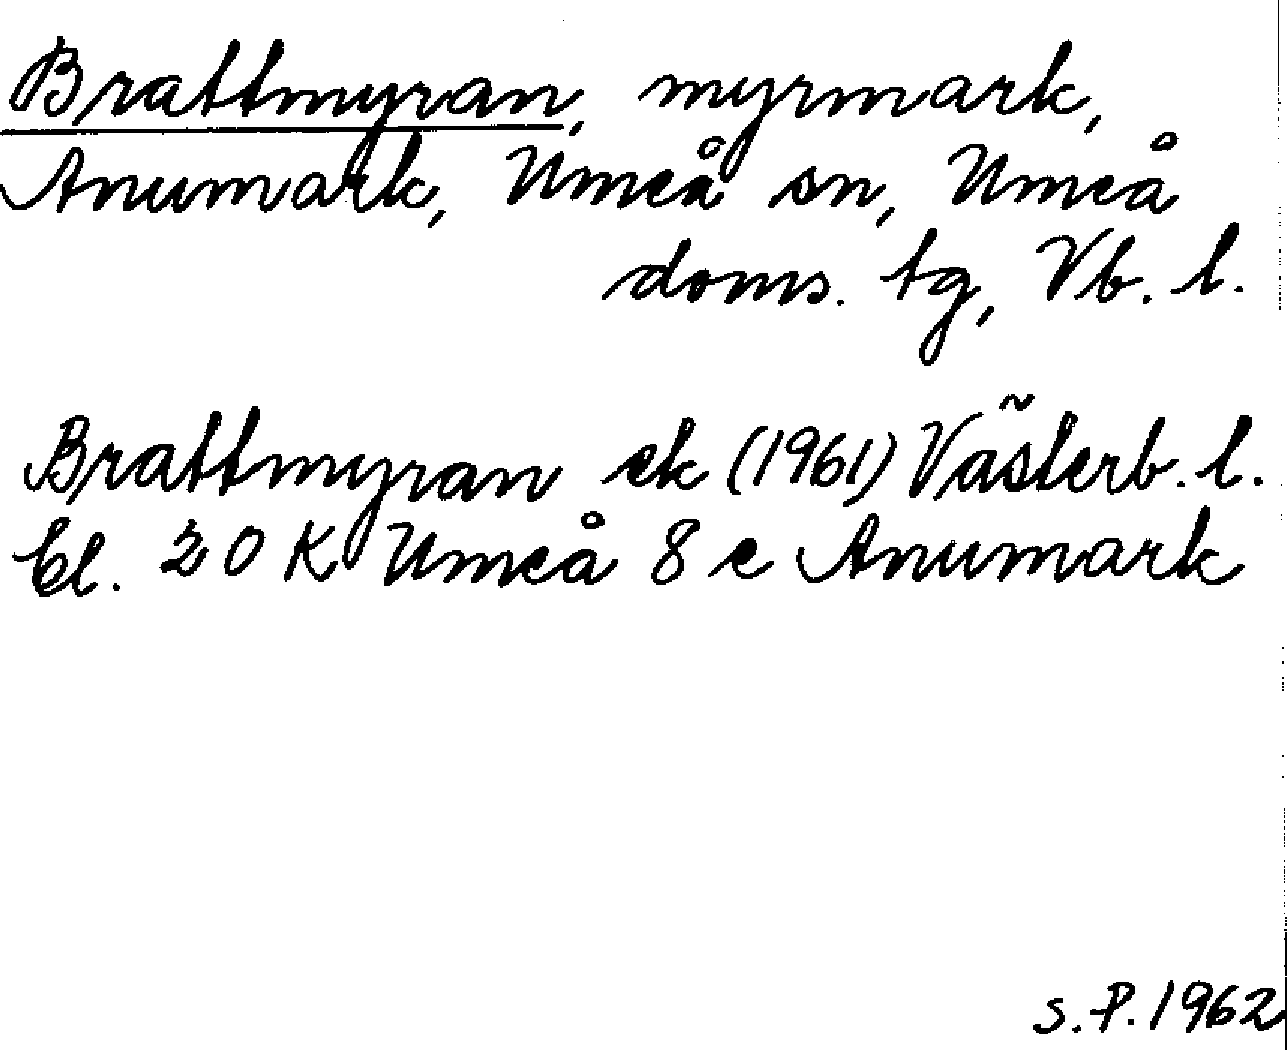 Brattmyran, myrmark,
Anumark, Umeå sn, Umeå
doms. tg, Vb. l.
Brattmyran ek (1961) Västerb. l.
bl. 20 K Umeå 8 e Anumark
S.P. 1962